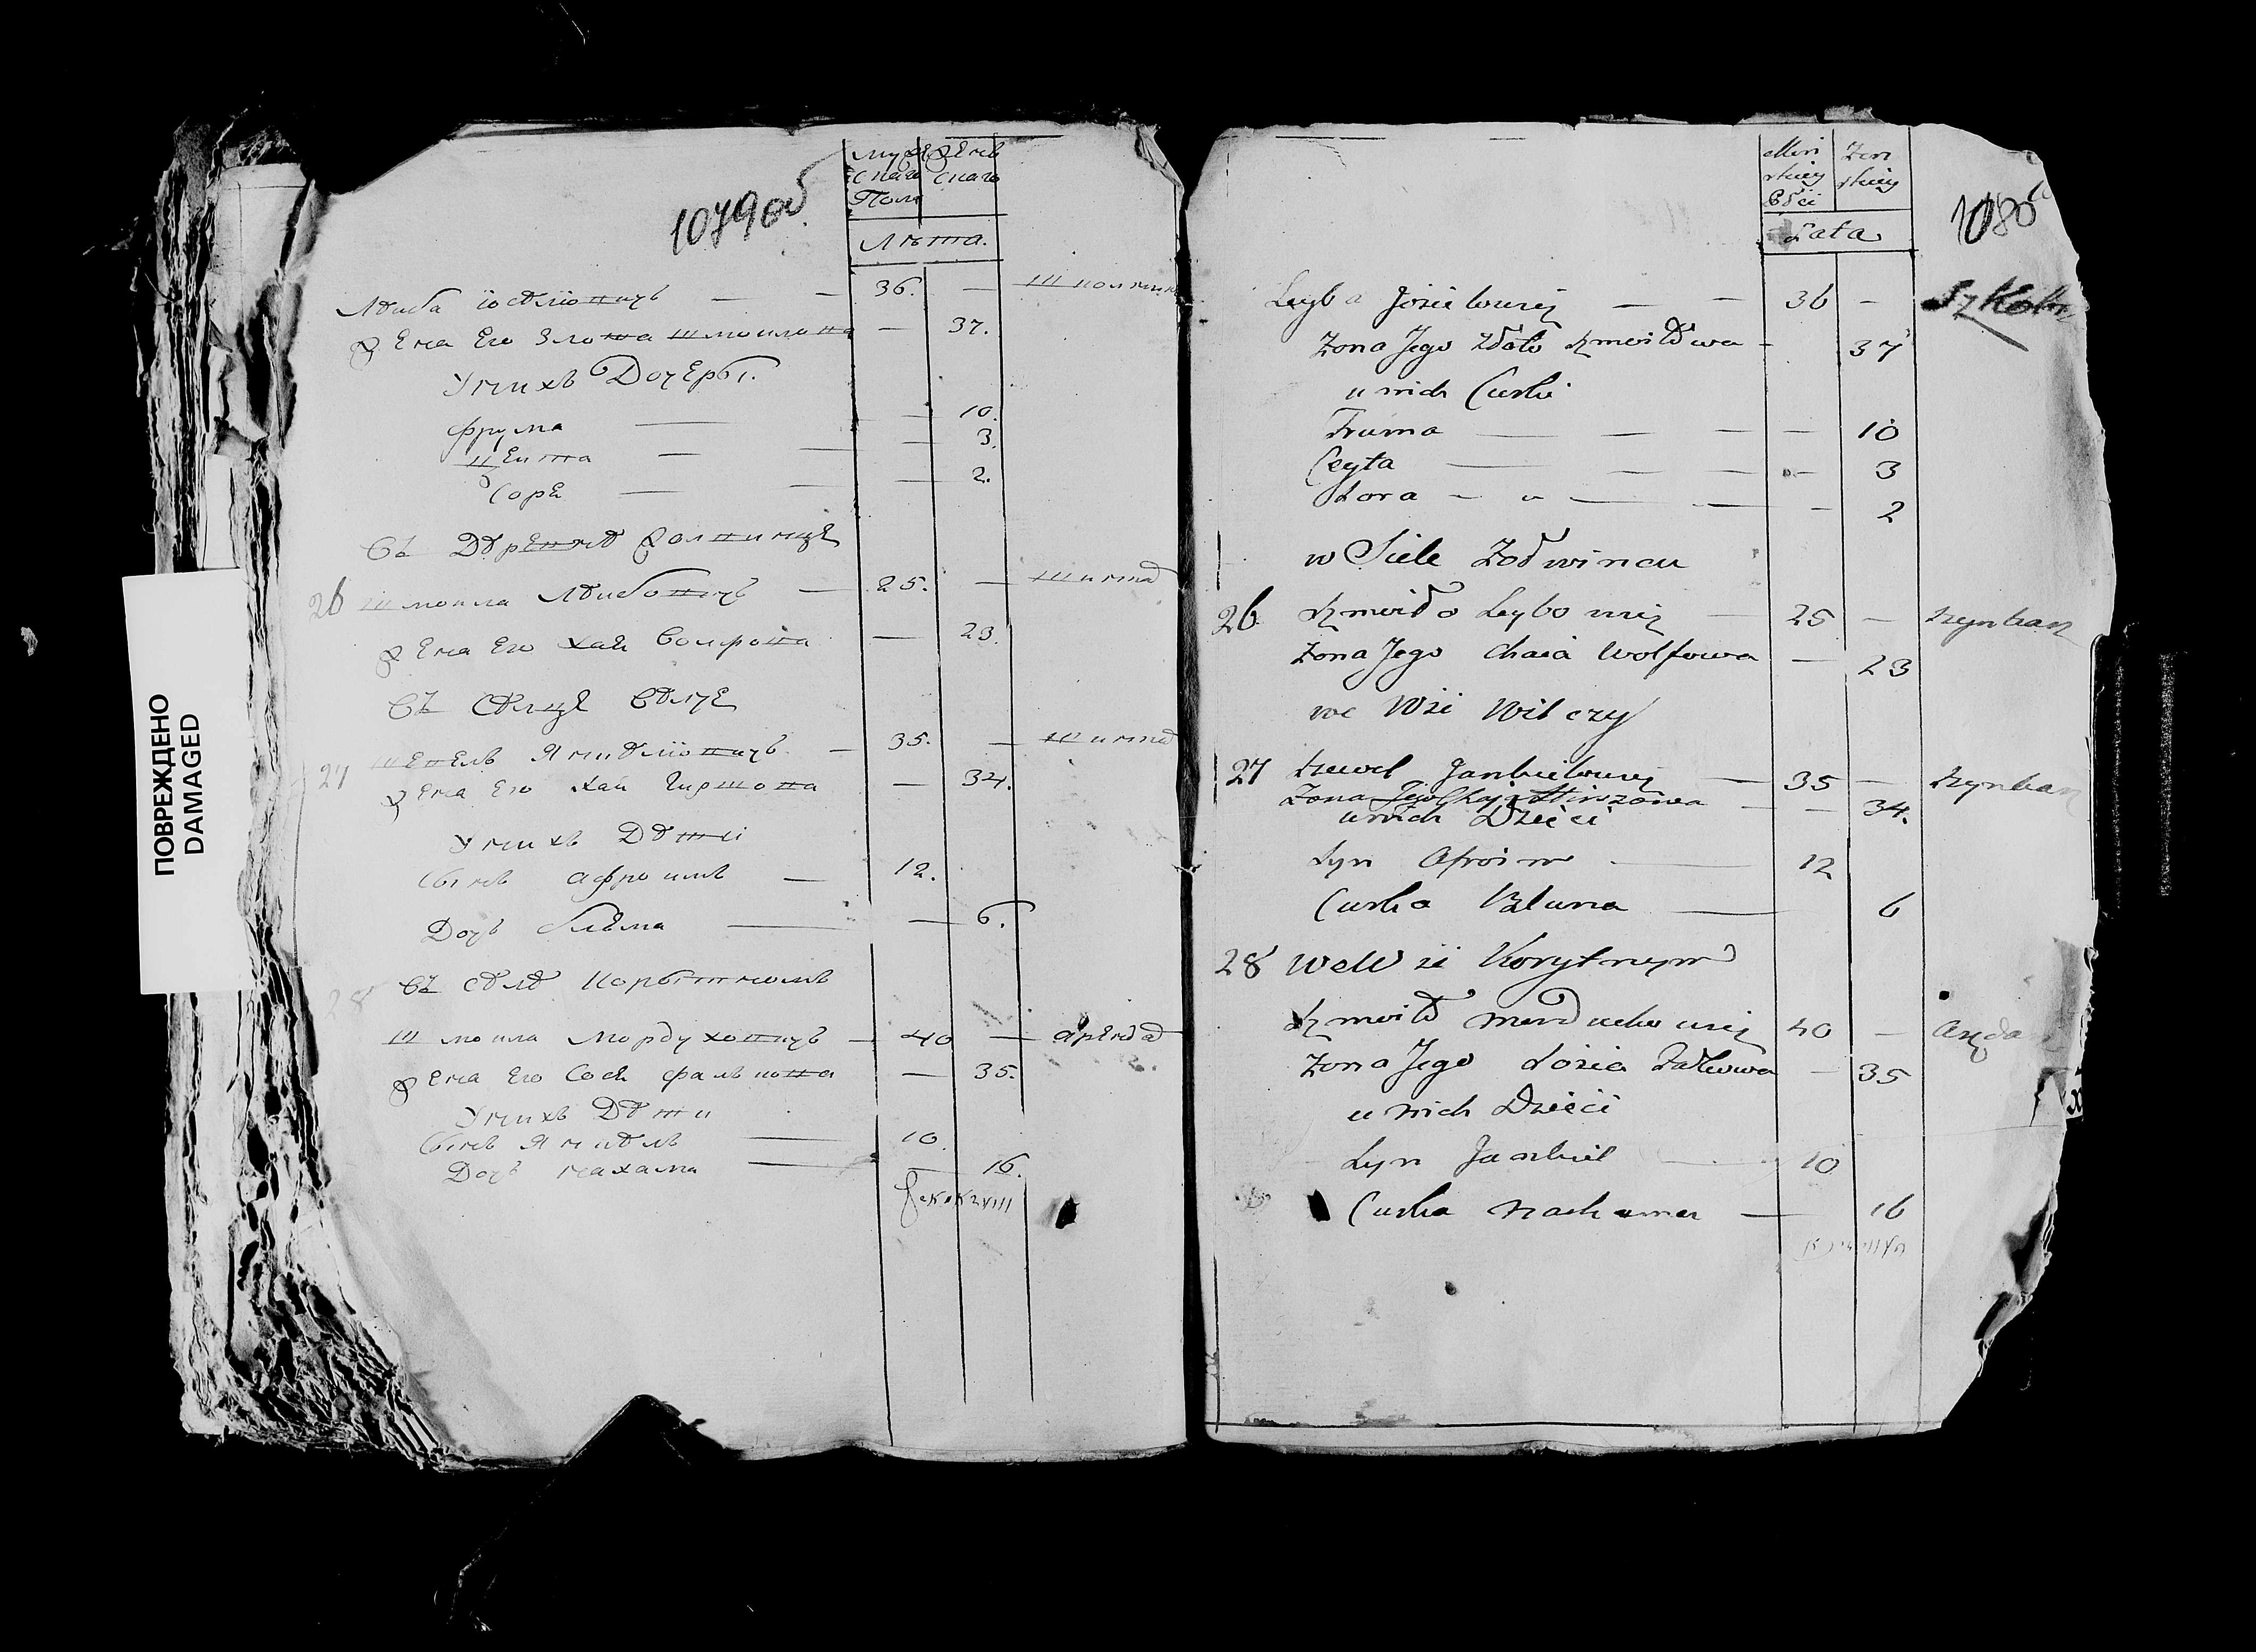 ПОВРЕЖДЕНО
DAMAGED
1079об
муже женс
скаго скаго
Полу
Лѣта.
Леиба Іоселiовичъ — — 36. —
Жена Его Злота Шмоилова — 37.
Унихъ Дочеры.
Фрума — — 10.
Цеита — — 3.
Соре — — 2.
Въ Деревне Жолвинце
26 Шмоила Леибовичъ — 25. — Шинка
Жена Его Хая Волфова — 23.
Въ Селце Велче
27 Шевель Янкелiовичъ — 35. — Шинка
Жена Его Хая Гиршова — 34.
Унихъ Дети
Сынъ Афроимъ — 12.
Дочь блюма — — 6.
28 Въ селе Корытномъ
Шмоила Мордуховичъ — 40 — аренда
Жена Его Сося Фалькова — 35.
Унихъ Дети
Сынъ Янкель — 10.
Дочь нахама — — 16.
Męs Żen
skiey skiey
Płci
Lata
1080
Leyba Josielowicz — — 36 —
Zona Jego Złota Szmoiłowa - 37
u nich Curki
Fruma — — — — 10
Ceyta — — — — 3
Sora — — — 2
w Siele Żołwincu
26 Szmoiło Leybowicz — 25 — szynkarz
Zona Jego Chaia Wolfowa — 23
we Wsi Wilczy
27 Szewel Jankielowicz — 35 — Szynkarz
Zona Jego Chaja Hirszowa — — 34.
unich Dzieci
Syn Afroim — 12
Curka Bluma — 6
28 We Wsi Korytnym
Szmoiło Morduchowicz 40 — Aręda
Zona Jego Sosia Fałkowa — 35
u nich Dzieci
Syn Jankiel — 10
Curka Nachama — 16